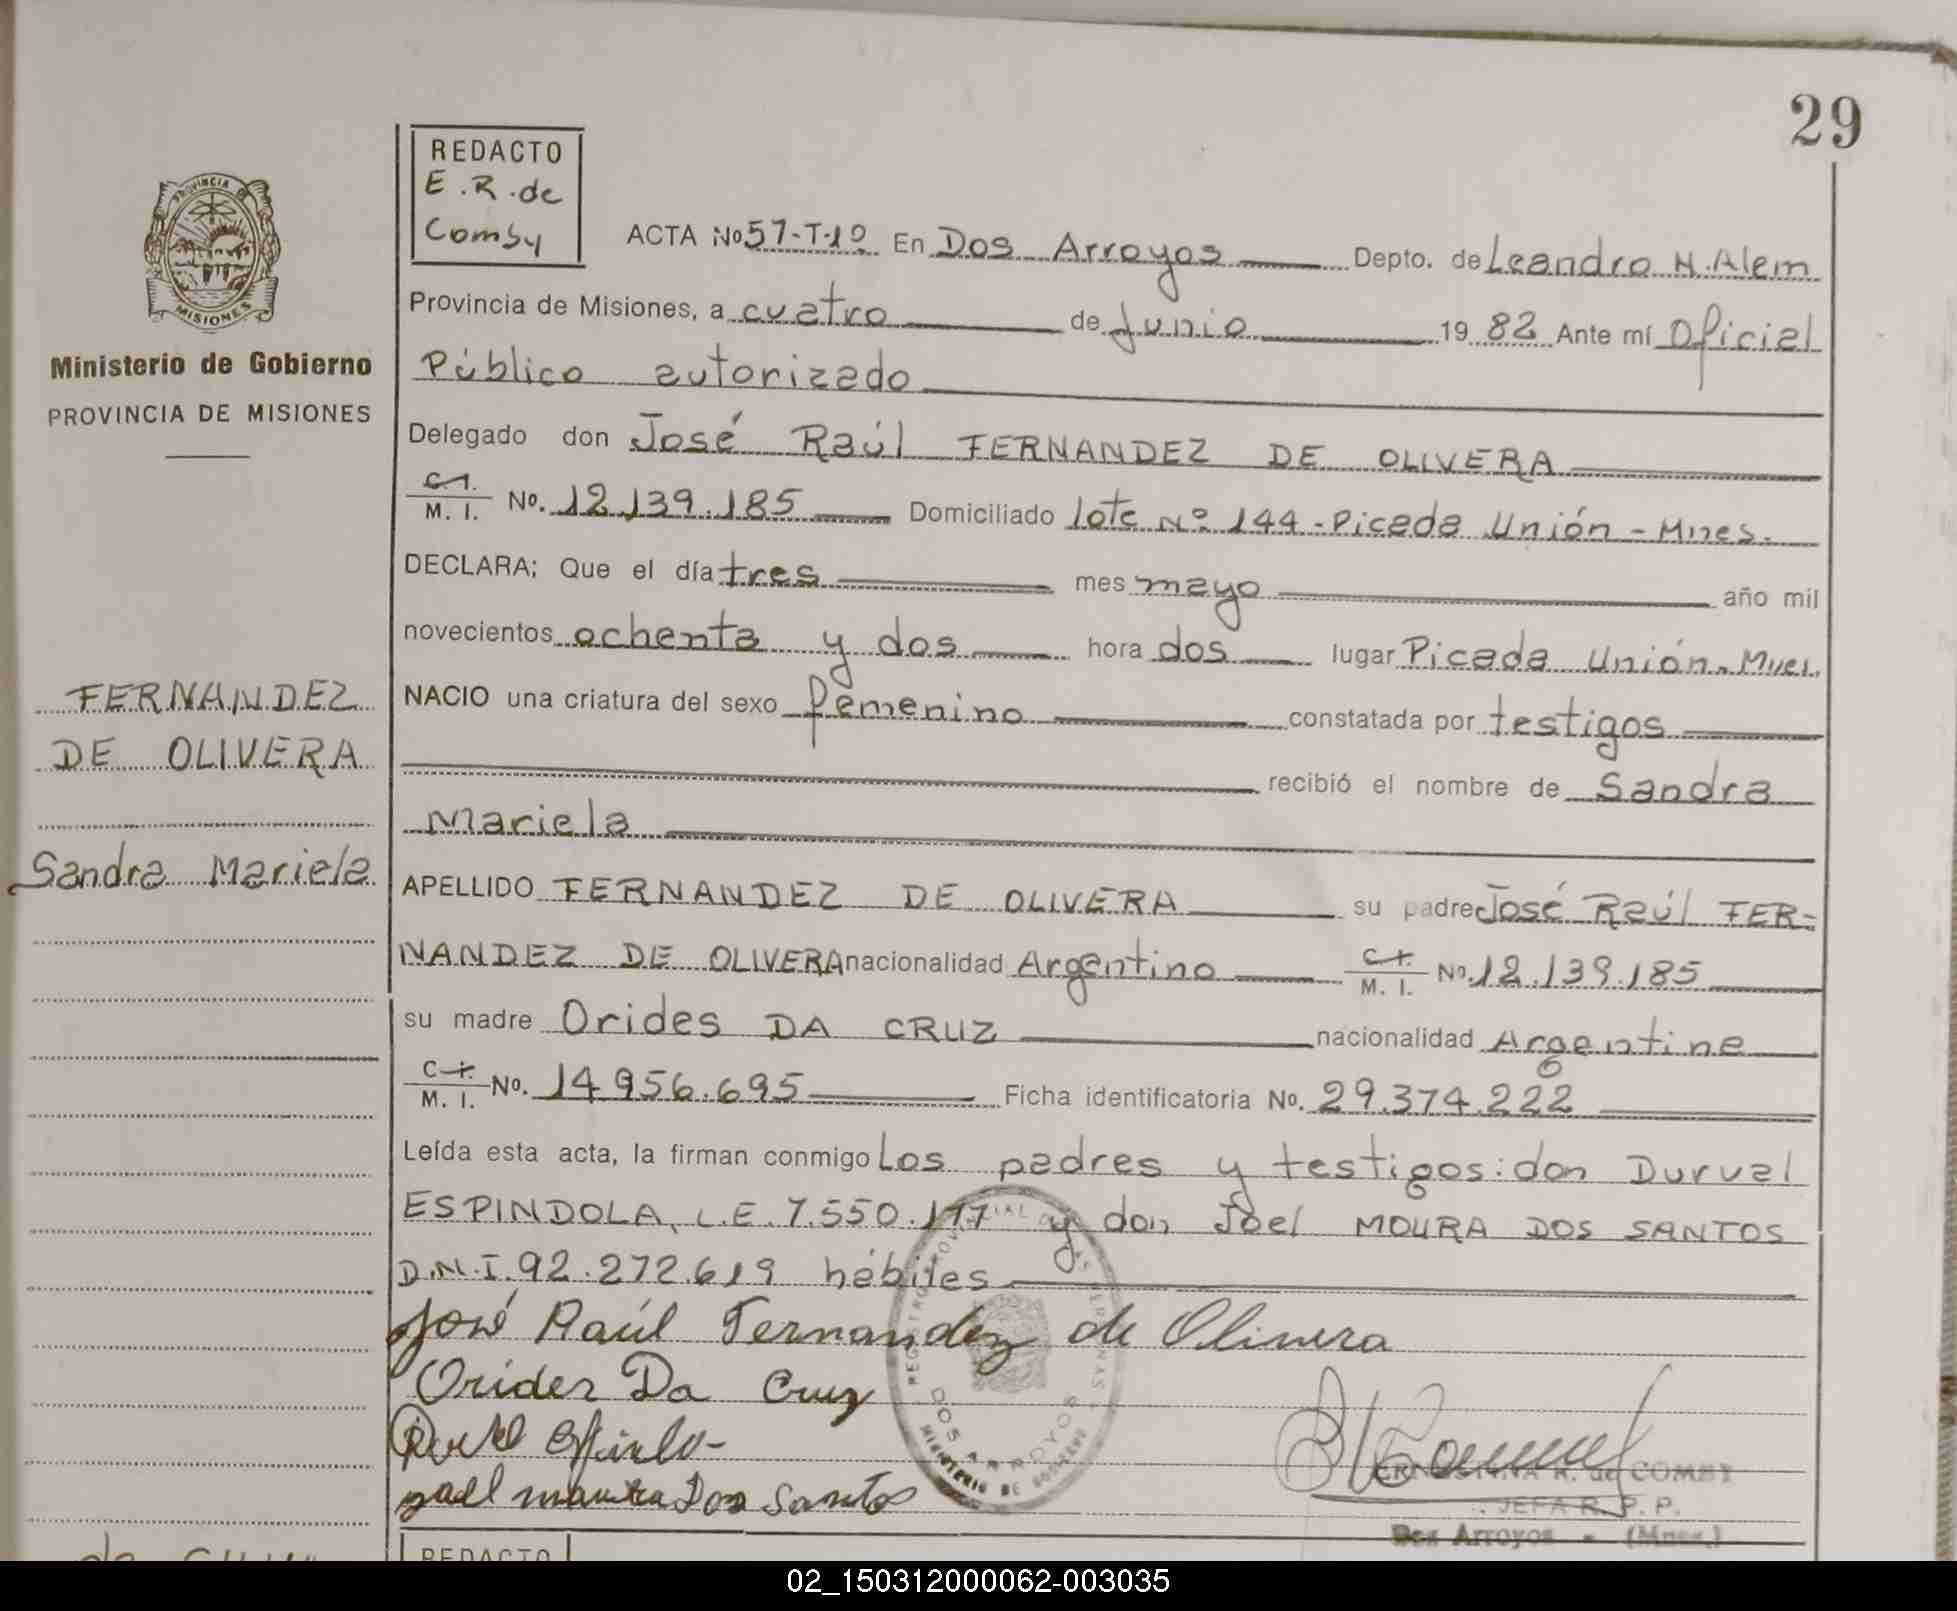 29
REDACTO
E.R. de
Comby
PROVINCIA DE
MISIONES
Ministerio de Gobierno
PROVINCIA DE MISIONES
FERNANDEZ
DE OLIVERA
Sandra Mariela
ACTA No 57-T-1º En Dos Arroyos Depto. de Leandro N. Alem
Provincia de Misiones, a cuatro de Junio 19 82 Ante mí Oficial
Público autorizado
Delegado don José Raúl FERNANDEZ DE OLIVERA
C.I. M. I. No. 12.139.185 Domiciliado lote Nº 144-Picada Unión - Mnes.
DECLARA; Que el día tres mes mayo año mil
novecientos ochenta y dos hora dos lugar Picada Unión-Mnes.
NACIO una criatura del sexo femenino constatada por testigos
recibió el nombre de Sandra
Mariela
APELLIDO FERNANDEZ DE OLIVERA su padre José Raúl FER-
NANDEZ DE OLIVERA nacionalidad Argentino C.I. M. I. No. 12.139.185
su madre Orides DA CRUZ nacionalidad Argentina
C.I. M. I. No. 14.956.695 Ficha identificatoria No. 29.374.222
Leída esta acta, la firman conmigo Los padres y testigos: don Durval
ESPINDOLA, L.E. 7.550.177 y don Joel MOURA DOS SANTOS
D.N.I. 92.272.619 hábiles
José Raúl Fernandez de Olivera
Orides Da Cruz
Joel moura Dos Santos
DOS ARROYOS
MINISTERIO DE GOBIERNO
R. de COMBY
JEFA R. P. P.
Dos Arroyos - (Mnes.)
REDACTO
02_150312000062-003035